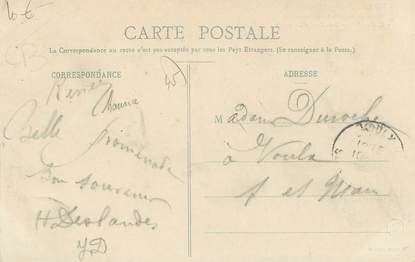 10 €
CARTE POSTALE
La Correspondance au recto n'est pas acceptée par tous les Pays Étrangers. (Se renseigner à la Poste.)
CORRESPONDANCE
ADRESSE
CB
Belle promenade
Bon souvenir
H Deslandes
YD
Madame
à Voulx
S et Marne